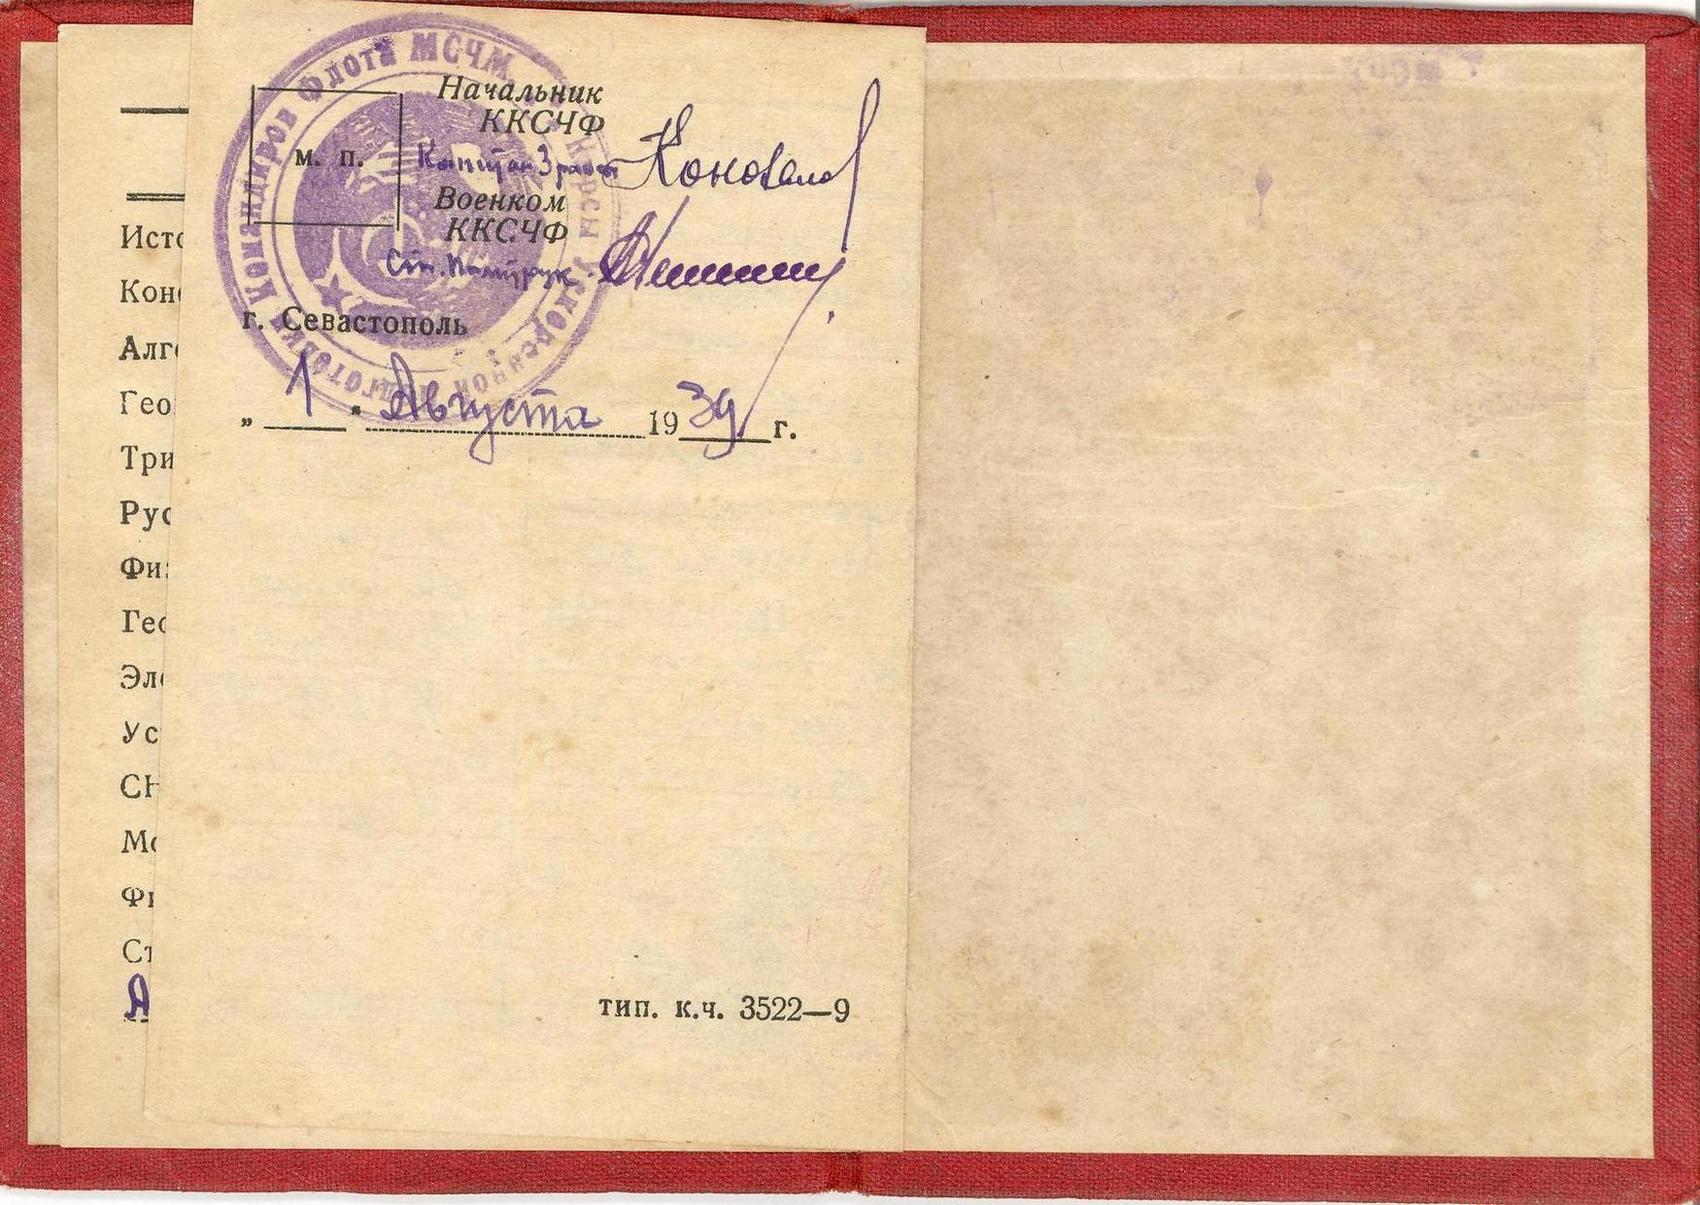 Начальник
ККСЧФ
м. п.
Капитан 3 ранга Коновалов
Военком
ККСЧФ
Ст. Политрук.
г. Севастополь
„ 1 " Августа 1939 г.
Курсы Ускоренной Подготовки Командиров Флота МСЧМ
Исто
Конс
Алге
Гео
Три
Рус
Физ
Гео
Эле
Ус
СН
Мо
Фи
Ст
А
тип. к.ч. 3522—9